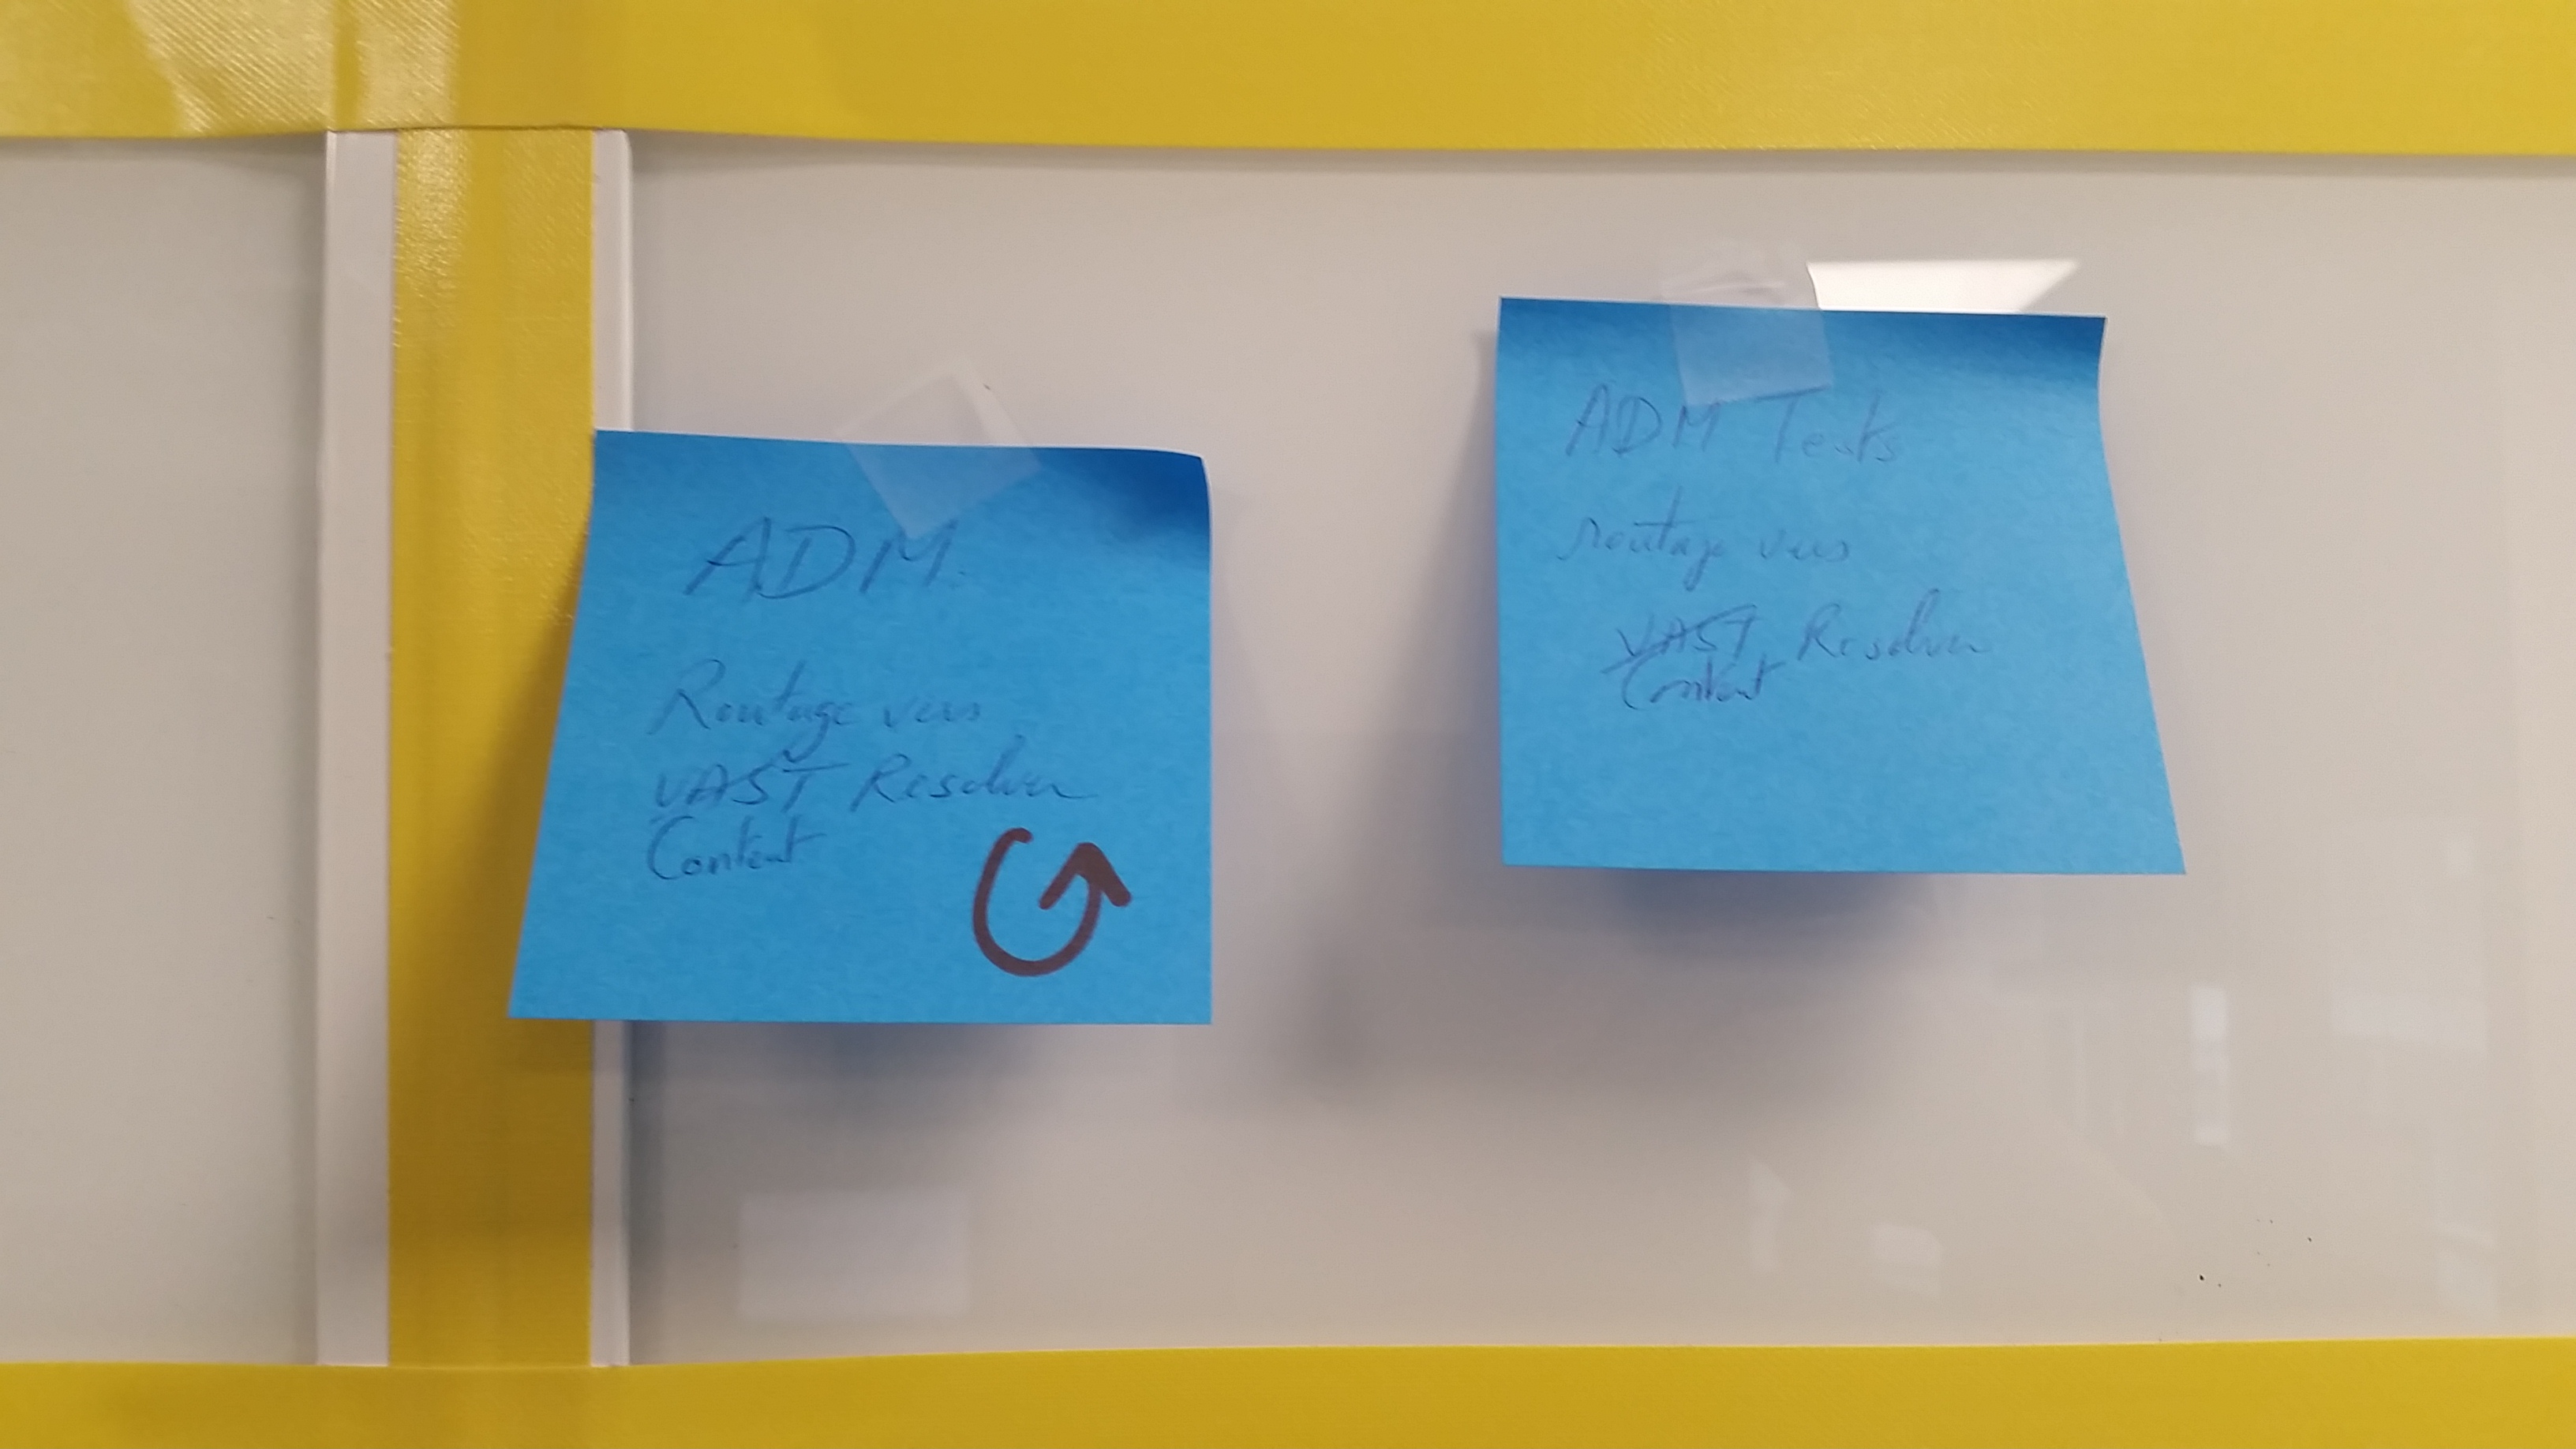 ADM.
Routage vers
VAST Resolver
Content
ADM Tests
routage vers
VAST Resolver
Content